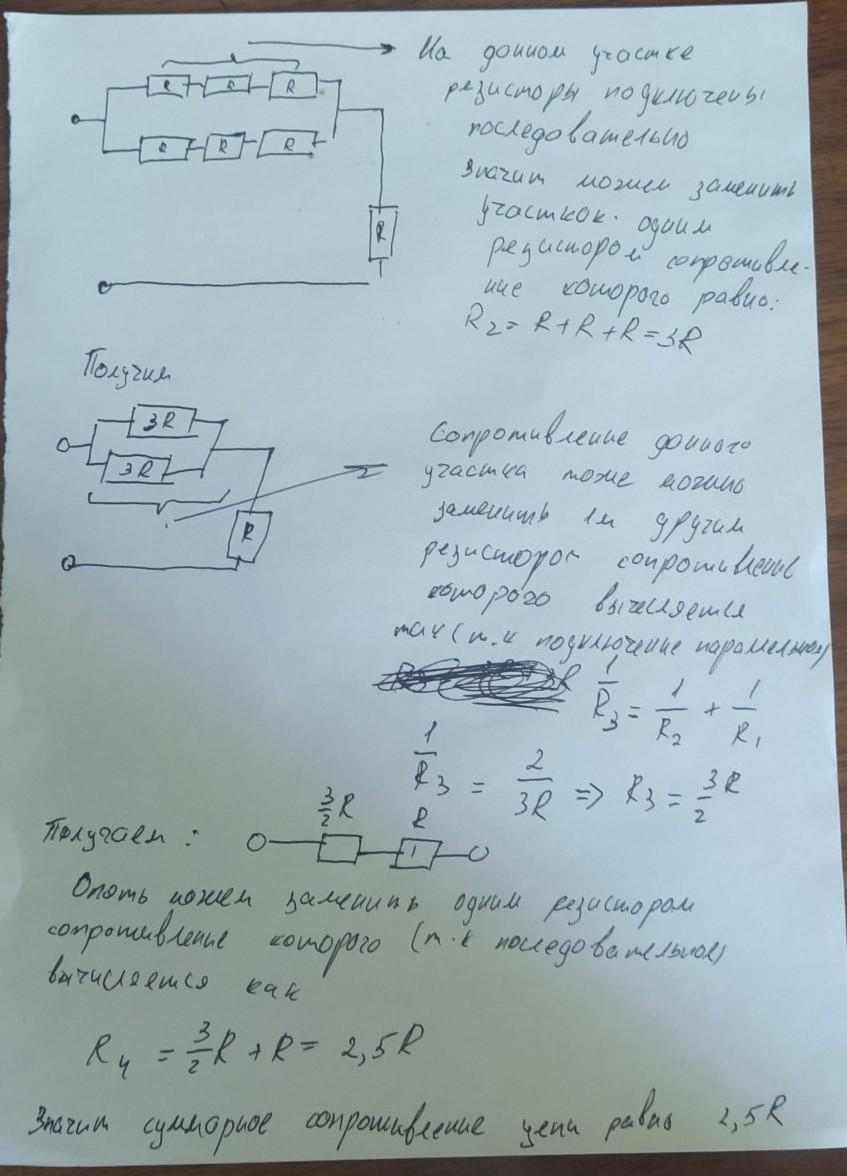 R R R
R R R
R
На данном участке
резисторы подключены
последовательно
Значит можем заменить
участкок одним
резистором сопротивле-
ние которого равно:
R₂ = R + R + R = 3R
Получим
3R
3R
R
Сопротивление данного
участка тоже можно
заменить 1м другим
резистором сопротивление
которого вычисляется
так (т.к подключение параллельное)
1/R₃ = 1/R₂ + 1/R₁
1/R₃ = 2/3R => R₃ = 3/2 R
3/2 R R
Получаем:
Опять можем заменить одним резистором
сопротивление которого (т.к последовательное)
вычисляется как
R₄ = 3/2 R + R = 2,5R
Значит суммарное сопротивление цепи равно 2,5R